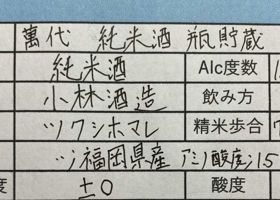 萬代 純米酒 瓶貯蔵
純米酒 Alc度数 1
小林酒造 飲み方
ツクシホマレ 精米歩合 7
〃 福岡県産 アミノ酸度 1.5
度 ±0 酸度